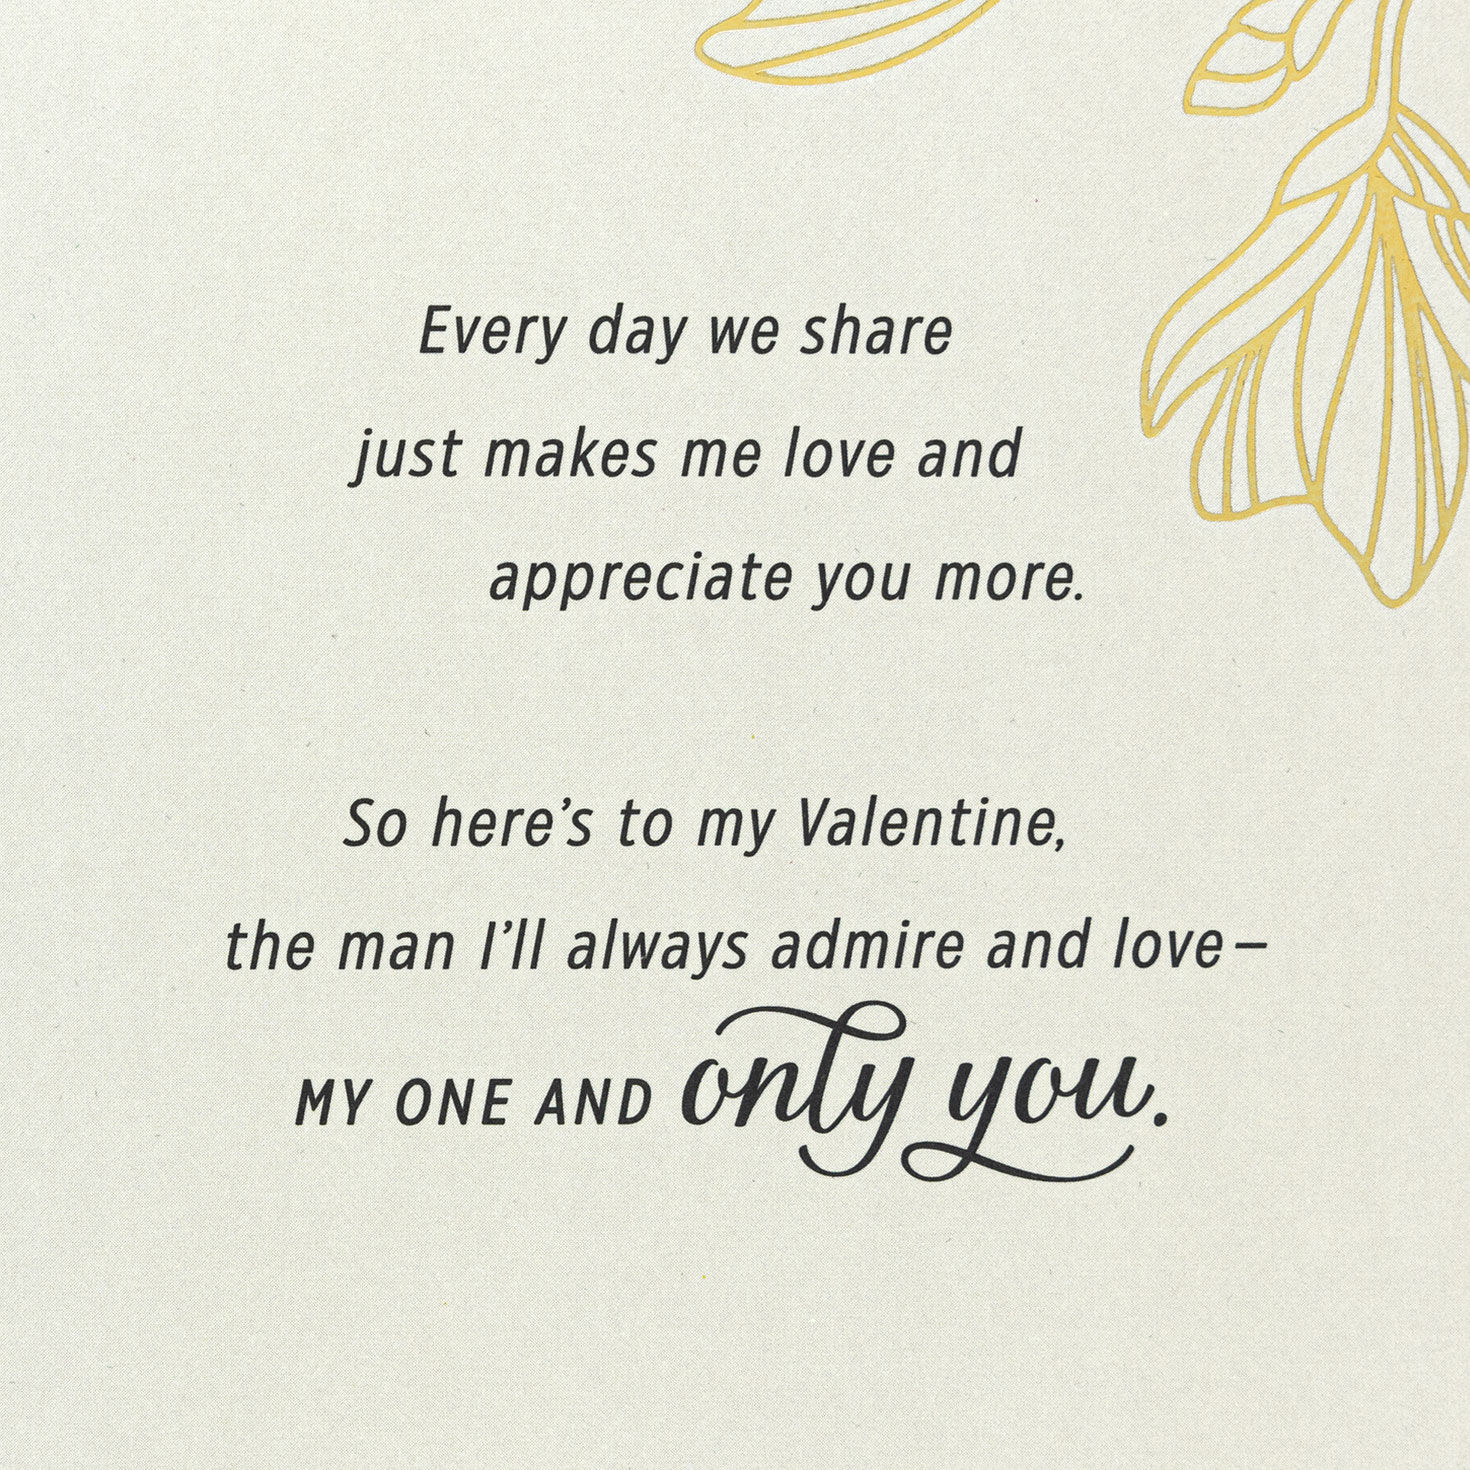 Every day we share
just makes me love and
appreciate you more.
So here’s to my Valentine,
the man I’ll always admire and love—
MY ONE AND only you.